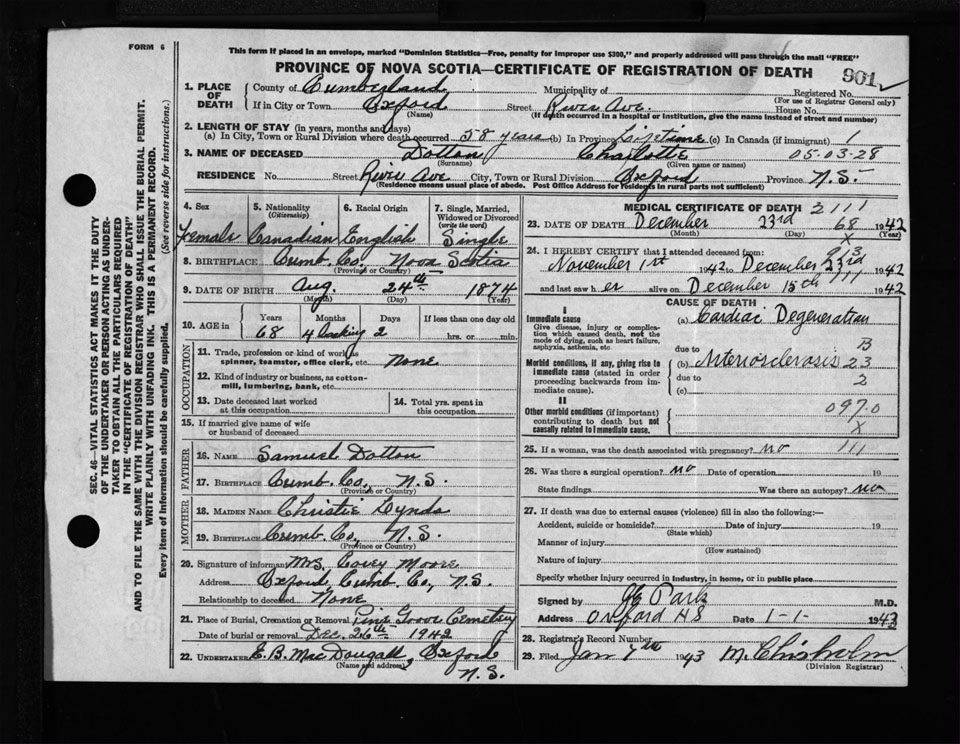 FORM 6
This form if placed in an envelope, marked "Dominion Statistics—Free, penalty for improper use $300," and properly addressed will pass through the mail "FREE"
PROVINCE OF NOVA SCOTIA—CERTIFICATE OF REGISTRATION OF DEATH
901
1. PLACE OF DEATH
County of Cumberland Municipality of Registered No.
(For use of Registrar General only)
If in City or Town Oxford Street River Ave. House No.
(Name) (If death occurred in a hospital or institution, give the name instead of street and number)
2. LENGTH OF STAY (in years, months and days)
(a) In City, Town or Rural Division where death occurred 58 years (b) In Province Lifetime (c) In Canada (if immigrant)
3. NAME OF DECEASED Dotton Charlotte 05-03-28
(Surname) (Given name or names)
RESIDENCE No. Street River Ave City, Town or Rural Division Oxford Province N.S.
(Residence means usual place of abode. Post Office Address for residents in rural parts not sufficient)
4. Sex 5. Nationality (Citizenship) 6. Racial Origin 7. Single, Married, Widowed or Divorced (write the word)
Female Canadian English Single
8. BIRTHPLACE Cumb. Co., Nova Scotia
(Province or Country)
9. DATE OF BIRTH Aug. 24th 1874
(Month) (Day) (Year)
10. AGE in Years Months Days If less than one day old
68 4 lacking 2 hrs. or min.
OCCUPATION
11. Trade, profession or kind of work as spinner, teamster, office clerk, etc. None
12. Kind of industry or business, as cotton-mill, lumbering, bank, etc.
13. Date deceased last worked at this occupation 14. Total yrs. spent in this occupation
15. If married give name of wife or husband of deceased
FATHER
16. NAME Samuel Dotton
17. BIRTHPLACE Cumb. Co., N.S.
(Province or Country)
MOTHER
18. MAIDEN NAME Christie Lynds
19. BIRTHPLACE Cumb. Co., N.S.
(Province or Country)
20. Signature of informant Mrs. Covey Moore
Address Oxford, Cumb. Co., N.S.
Relationship to deceased None
21. Place of Burial, Cremation or Removal Pine Grove Cemetery
Date of burial or removal Dec. 26th 1942
22. UNDERTAKER E. B. MacDougall, Oxford
(Name and address) N.S.
MEDICAL CERTIFICATE OF DEATH 2111
23. DATE OF DEATH December 23rd 68 1942
(Month) (Day) X (Year)
24. I HEREBY CERTIFY that I attended deceased from:
November 1st 1942 to December 23rd 1942
and last saw her alive on December 15th 1942
CAUSE OF DEATH
I
Immediate cause (a) Cardiac Degeneration
Give disease, injury or complication which caused death, not the mode of dying, such as heart failure, asphyxia, asthenia, etc.
due to B
Morbid conditions, if any, giving rise to immediate cause (stated in order proceeding backwards from immediate cause).
(b) Arteriosclerosis 23
due to 2
(c)
II
Other morbid conditions (if important) contributing to death but not causally related to immediate cause.
097.0
X
25. If a woman, was the death associated with pregnancy? no 111
26. Was there a surgical operation? no Date of operation 19
State findings Was there an autopsy? no
27. If death was due to external causes (violence) fill in also the following:—
Accident, suicide or homicide? Date of injury 19
(State which)
Manner of injury
(How sustained)
Nature of injury
Specify whether injury occurred in industry, in home, or in public place
Signed by Park M.D.
Address Oxford NS Date 1-1- 1943
28. Registrar's Record Number
29. Filed Jan 7th 1943 M. Chisholm
(Division Registrar)
SEC. 46—VITAL STATISTICS ACT MAKES IT THE DUTY
OF THE UNDERTAKER OR PERSON ACTING AS UNDER-
TAKER TO OBTAIN ALL THE PARTICULARS REQUIRED
IN THE "CERTIFICATE OF REGISTRATION OF DEATH"
AND TO FILE THE SAME WITH THE DIVISION REGISTRAR WHO SHALL ISSUE THE BURIAL PERMIT.
WRITE PLAINLY WITH UNFADING INK. THIS IS A PERMANENT RECORD.
Every item of information should be carefully supplied. (See reverse side for instructions.)